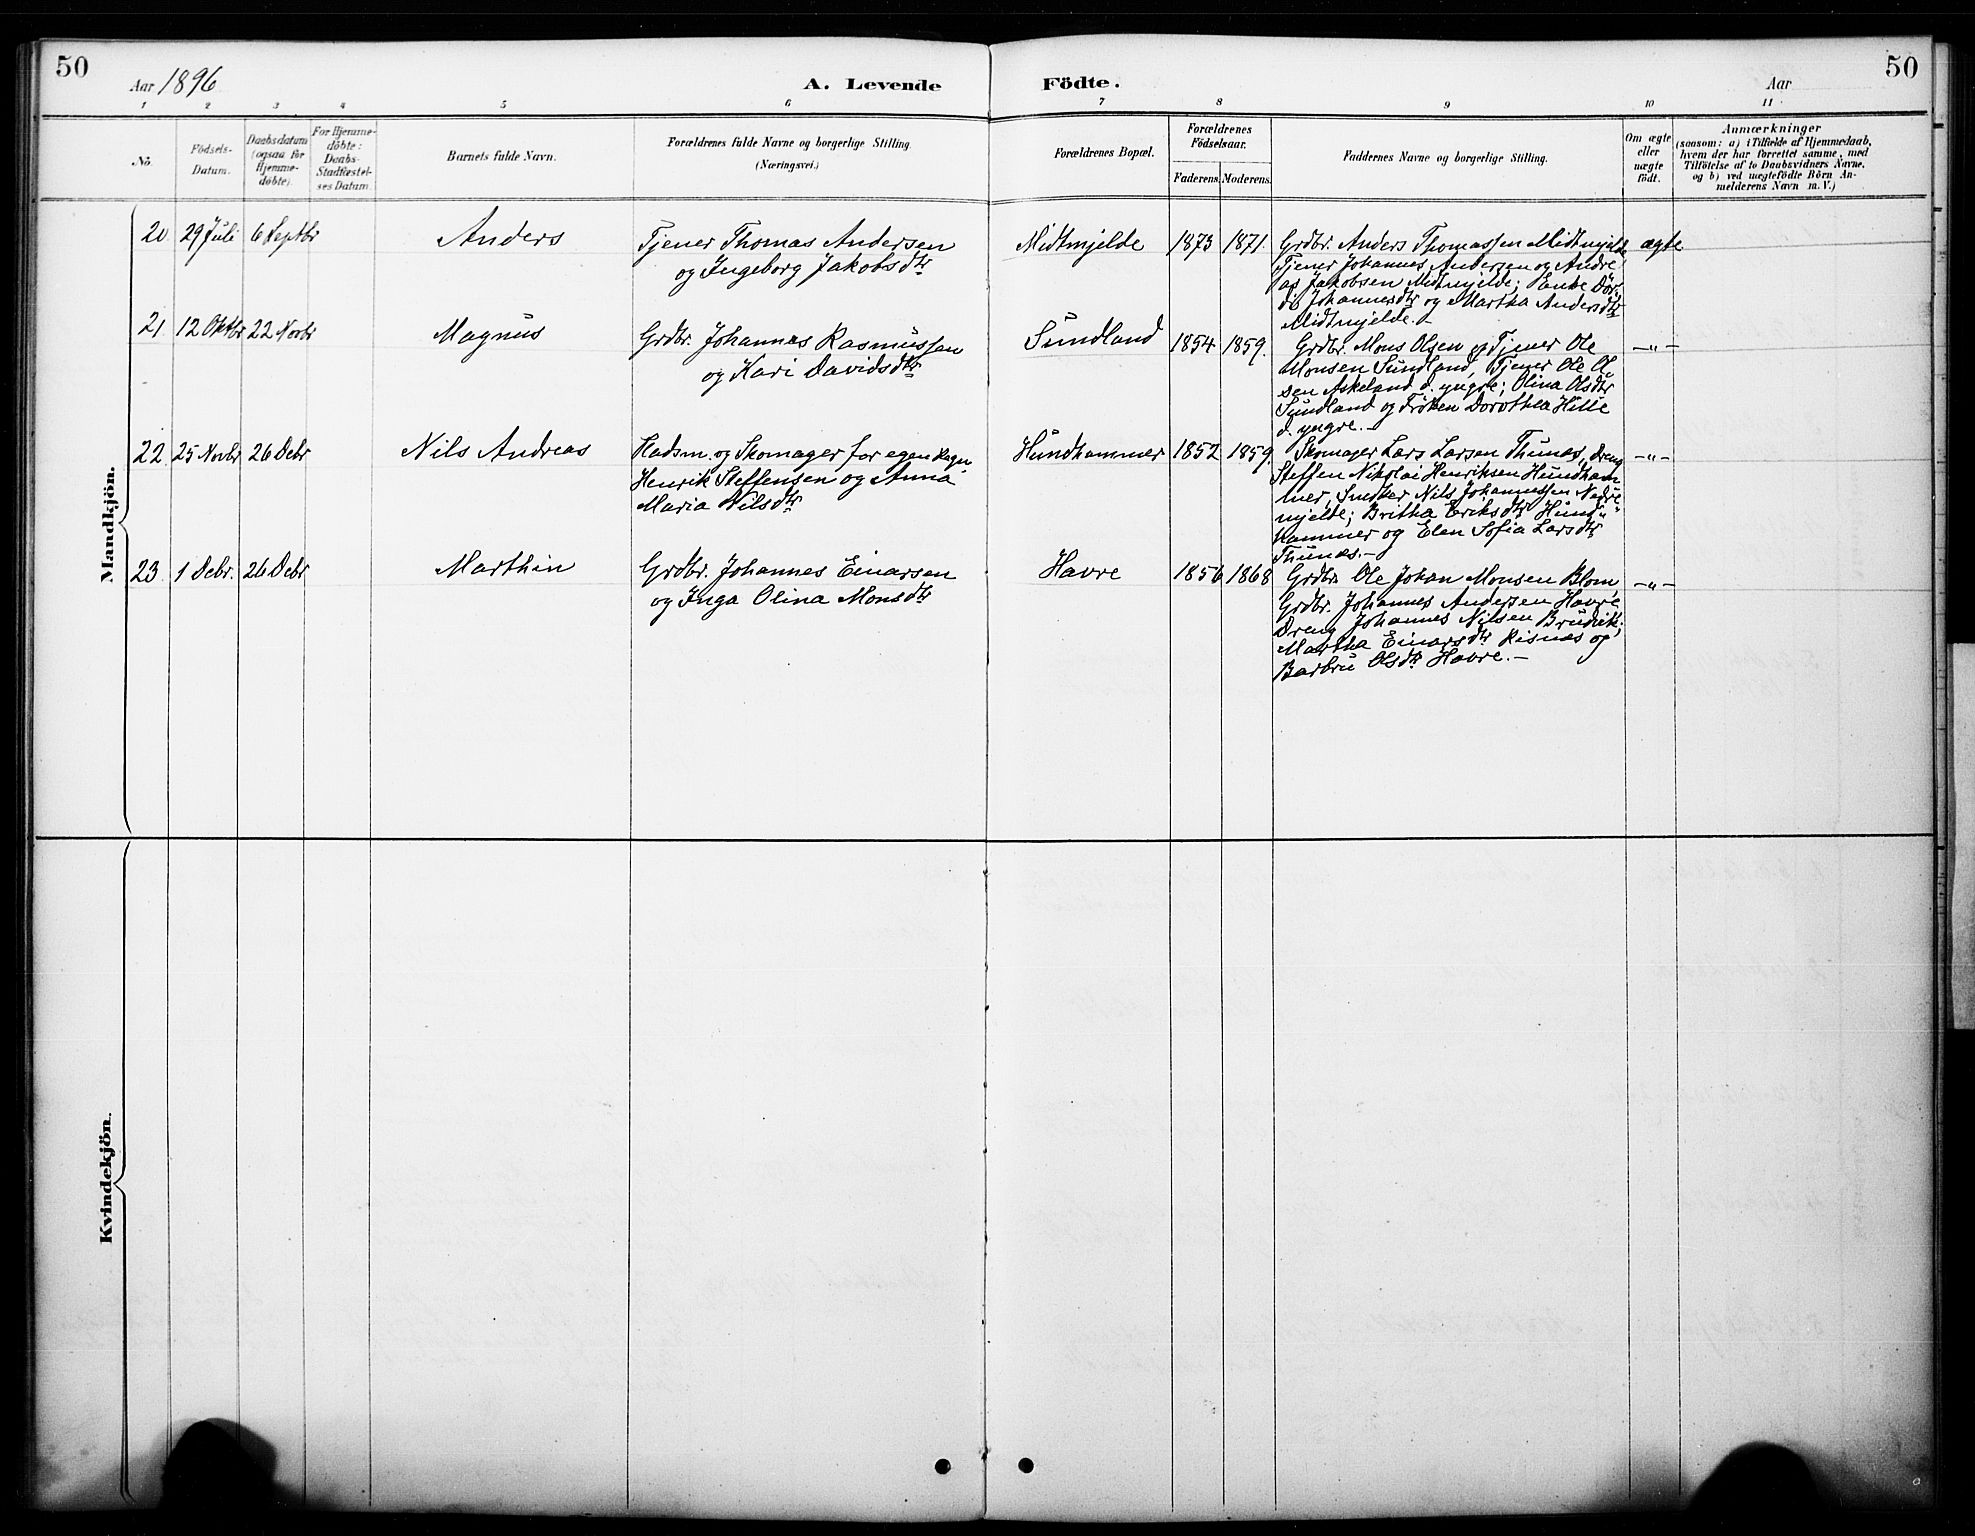 50
Aar 1896
A. Levende
Födte.
Aar
50
1 2 3 4 5 6 7 8 9 10 11
No.
Födsels-
Datum.
Daabsdatum
(ogsaa for
Hjemme-
döbte).
For Hjemme-
döbte:
Daabs-
Stadfæstel-
ses Datum.
Barnets fulde Navn.
Forældrenes fulde Navne og borgerlige Stilling.
(Næringsvei.)
Forældrenes Bopæl.
Forældrenes
Födselsaar.
Faderens.
Moderens.
Faddernes Navne og borgerlige Stilling.
Om ægte
eller
uægte
födt.
Anmærkninger
(saasom: a) i Tilfælde af Hjemmedaab,
hvem der har forrettet samme, med
Tilföielse af to Daabsvidners Navne,
og b) ved uægtefödte Börn An-
melderens Navn m. V.)
Mandkjön.
20 29 Juli 6 Septbr Anders
Tjener Thomas Andersen
og Ingeborg Jakobsdtr
Midtmjelde 1873 1871.
Grdbr. Anders Thomassen Midtmjelde
Tjener Johannes Andersen og Andre
as Jakobsen Midtmjelde; Enke Dor-
dei Johannesdtr og Martha Andersdtr
Midtmjelde.-
ægte
21. 12 Oktbr 22 Novbr Magnus
Grdbr. Johannes Rasmussen
og Kari Davidsdtr
Sundland 1854 1859.
Grdbr. Mons Olsen og Tjener Ole
Monsen Sundland, Tjener Ole Ol
sen Askeland d. yngre; Olina Olsdtr
Sundland og Fröken Dorothea Hille
d. yngre.-
-"-
22. 25 Novbr 26 Debr Nils Andreas
Husm. og Skomager for egen Regn.
Henrik Steffensen og Anna
Maria Nilsdtr
Hundhammer 1852 1859.
Skomager Lars Larsen Thunæs, Dreng
Steffen Nikolai Henriksen Hundham
mer, Snedker Nils Johannessen Nedre
mjelde; Britha Eriksdtr Hund"
hammer og Elen Sofia Larsdtr
Thunæs.-
-"-
23. 1 Debr. 26 Debr Marthin
Grdbr. Johannes Einarsen
og Inga Olina Monsdtr
Havre 1856 1868
Grdbr. Ole Johan Monsen Blom,
Grdbr. Johannes Andersen Havre,
Dreng Johannes Nilsen Bruvik;
Martha Einarsdtr Risnæs og
Barbru Olsdtr Havre.-
-"-
Kvindekjön.